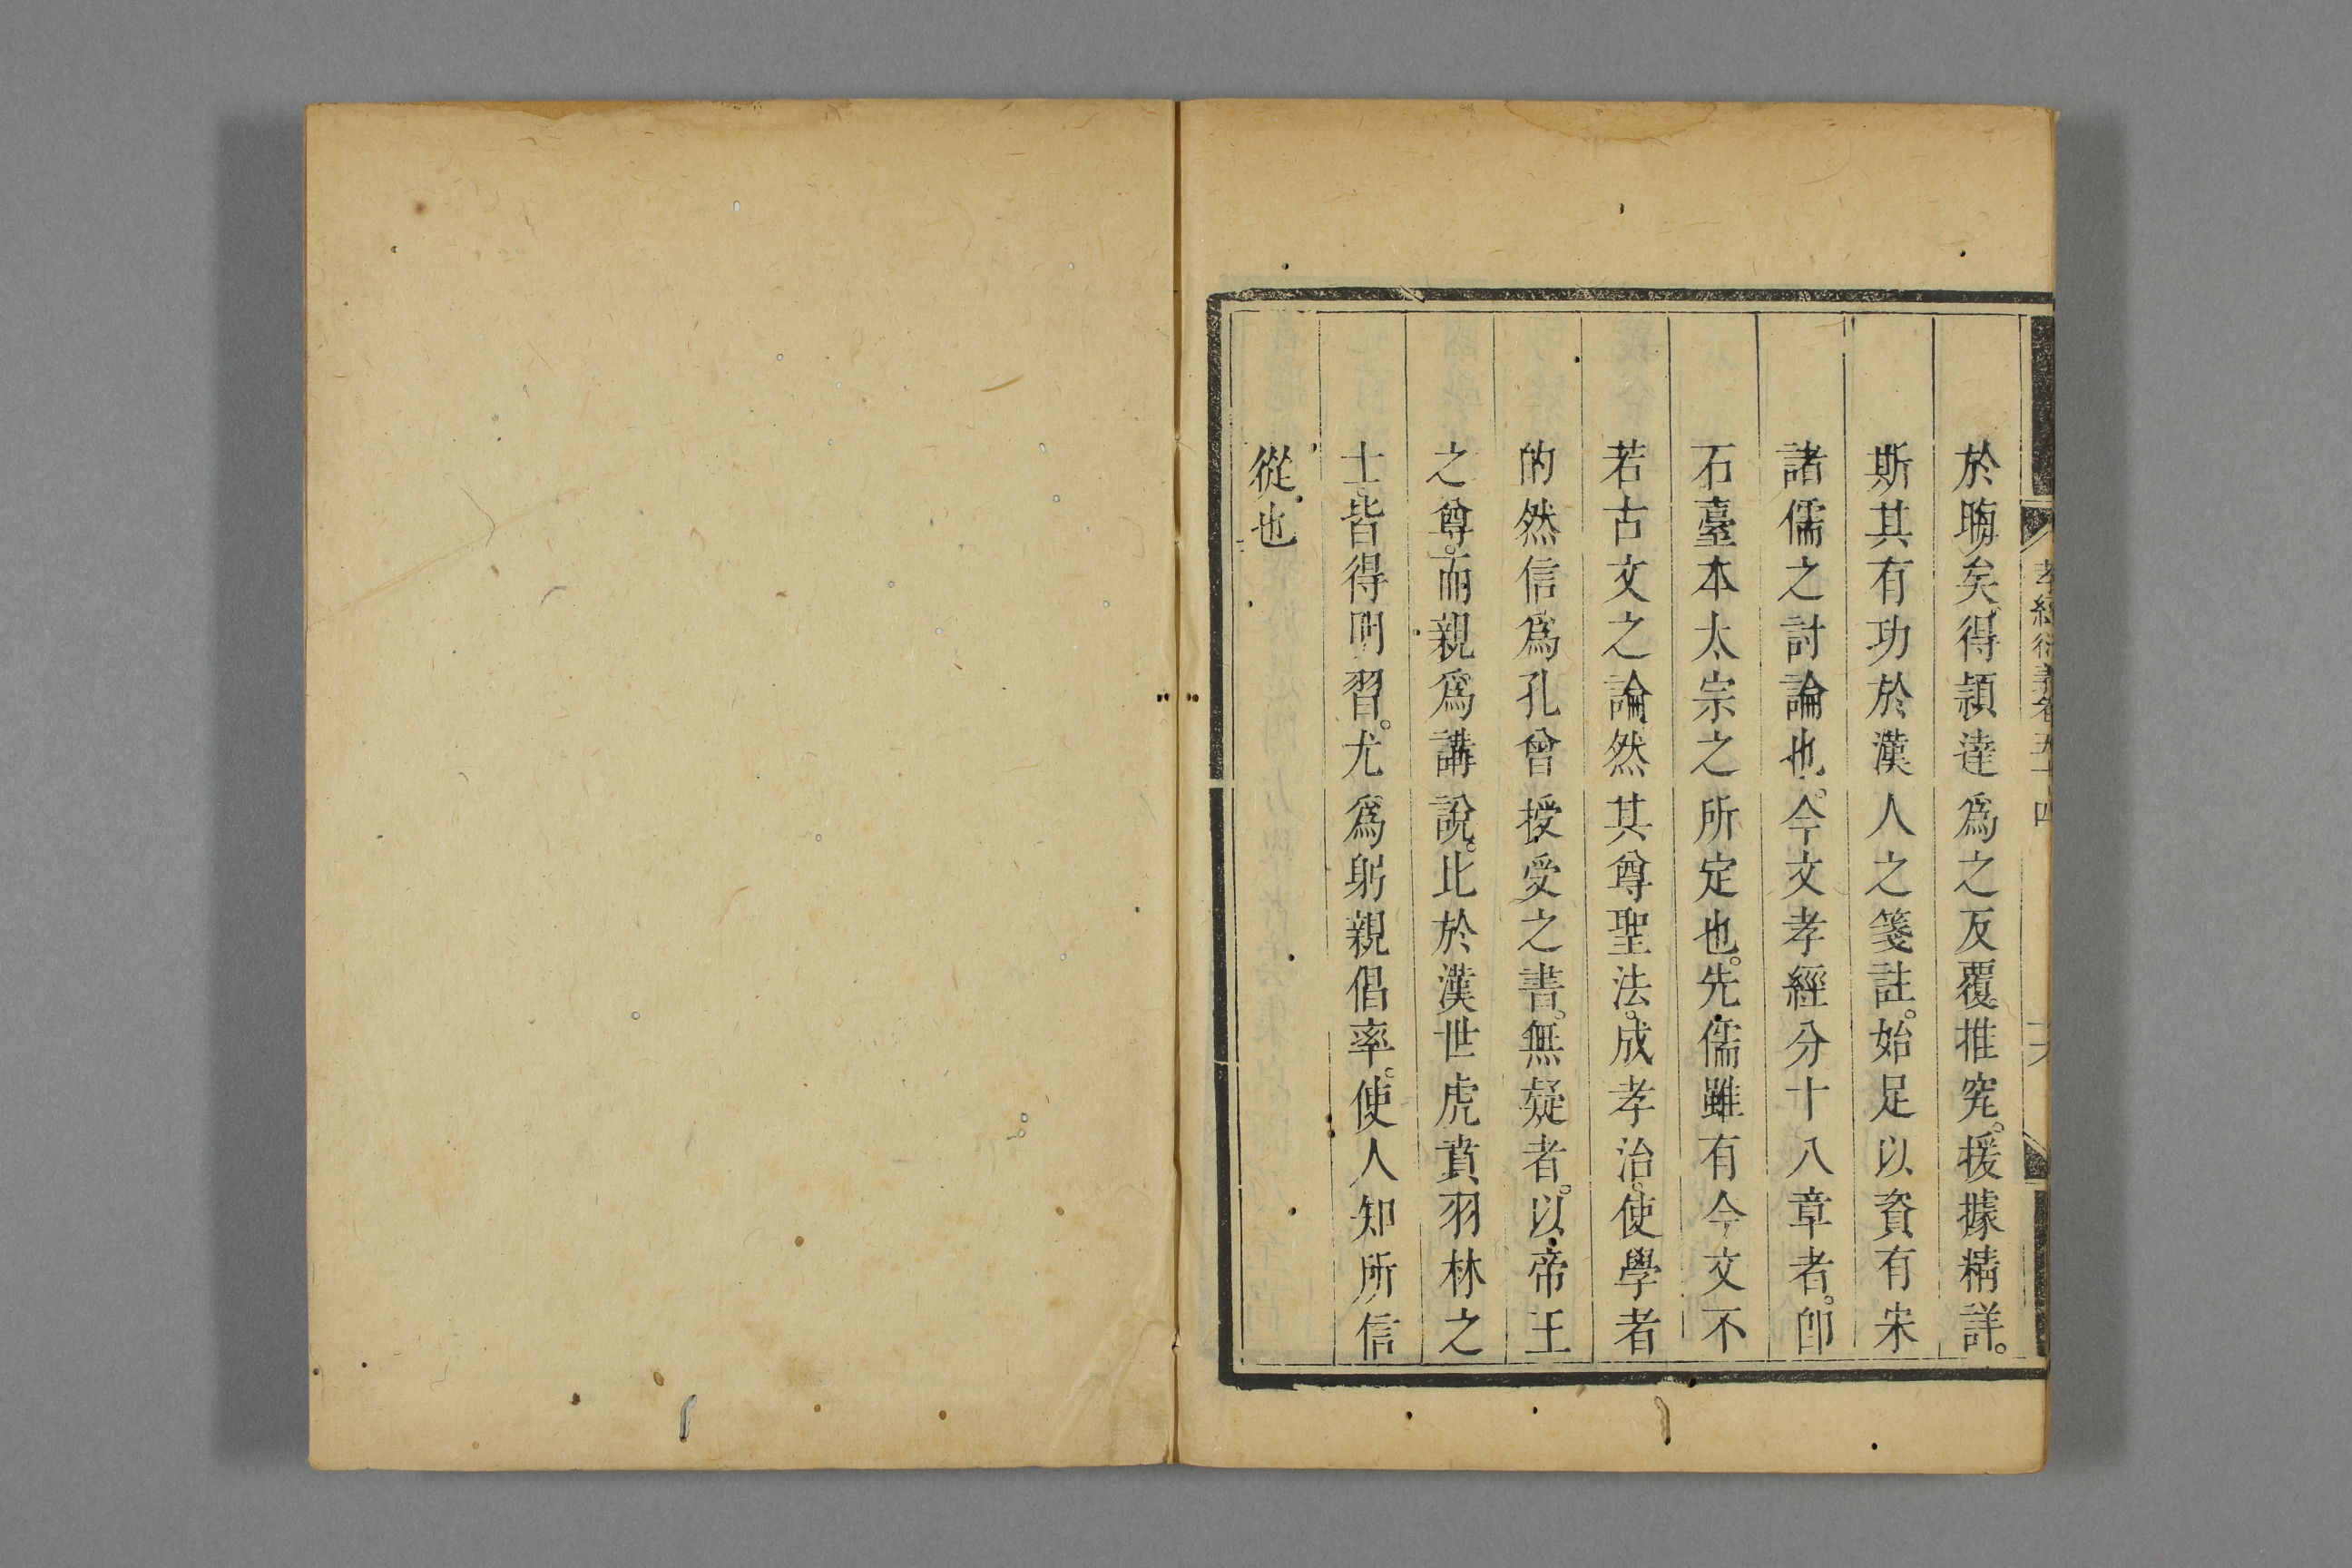 孝經衍義卷五十四
於晦矣得穎達為之反覆推究。援據精詳。
斯其有功於漢人之箋註。始足以資有宋
諸儒之討論也。今文孝經分十八章者。卽
石臺本太宗之所定也。先儒雖有今文不
若古文之論然其尊聖法。成孝治。使學者
的然信爲孔曾授受之書。無疑者。以帝王
之尊。而親爲講說。此於漢世虎賁羽林之
士皆得明習。尤爲躬親倡率。使人知所信
從也